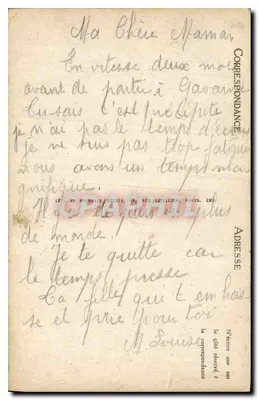 Ma Chère Maman
En vitesse deux mots
avant de partir à Gavarnie
Tu sais c'est précipité
je n'ai pas le temps d'écrire
je ne suis pas trop fatiguée
nous avons un temps ma
gnifique.
de plus plus
de monde.
Je te quitte car
le temps presse
Ta fille qui t'embras
se et prie pour toi
M Louise
CORRESPONDANCE
ADRESSE
N'écrire que sur
le côté réservé à
la correspondance
CPAPHIL